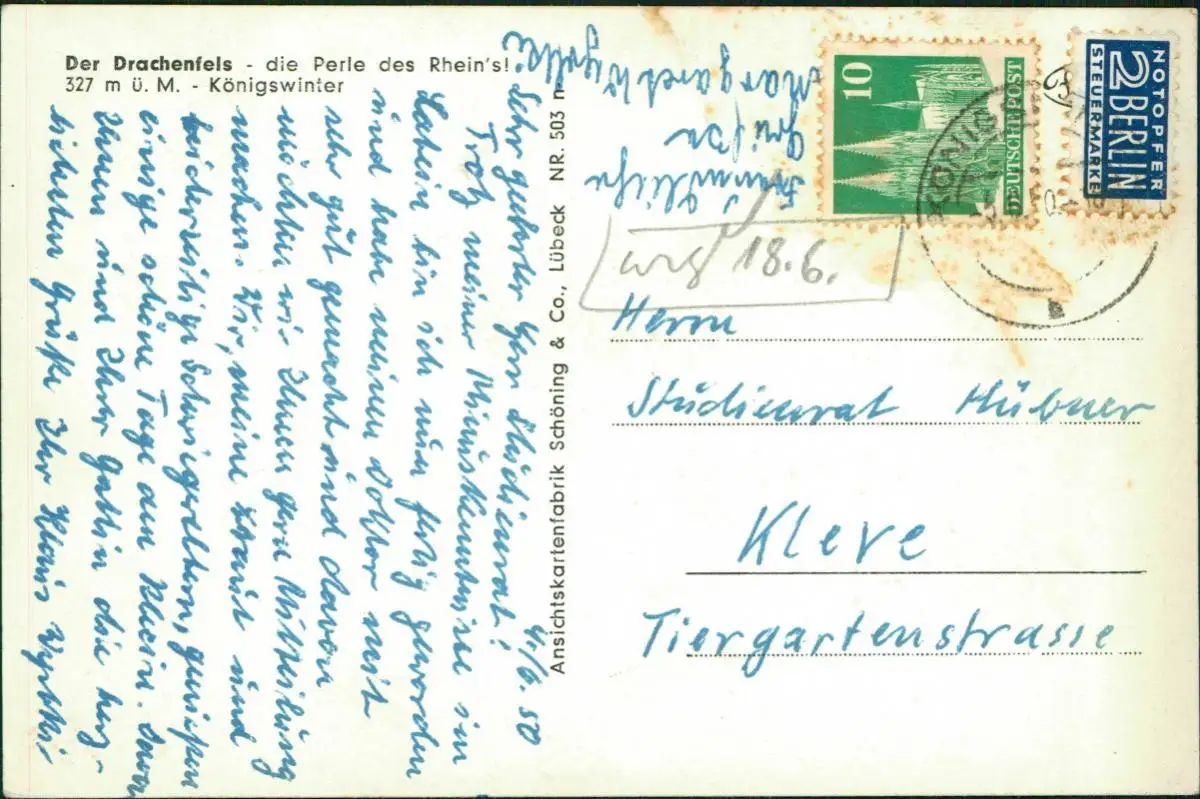 Der Drachenfels - die Perle des Rhein's!
327 m ü. M. - Königswinter
4./6. 50
Sehr geehrter Herr Studienrat!
Trotz meiner Minuskenntnisse im
Latein bin ich nun fertig geworden
und habe meinen Doktor mit
sehr gut gemacht und davon
möchten wir Ihnen gern Mitteilung
machen. Wir, meine Braut und
beiderseitige Schwiegereltern, genießen
einige schöne Tage am Rhein.
Ihnen und Ihrer Gattin die herz-
lichsten Grüße Ihr Klaus
Freundliche
Grüße
Margaret
Ansichtskartenfabrik Schöning & Co., Lübeck NR. 503 n
10
DEUTSCHE POST
NOTOPFER
2 BERLIN
STEUERMARKE
KÖNIGS
18.6.
Herrn
Studienrat Hübner
Kleve
Tiergartenstrasse